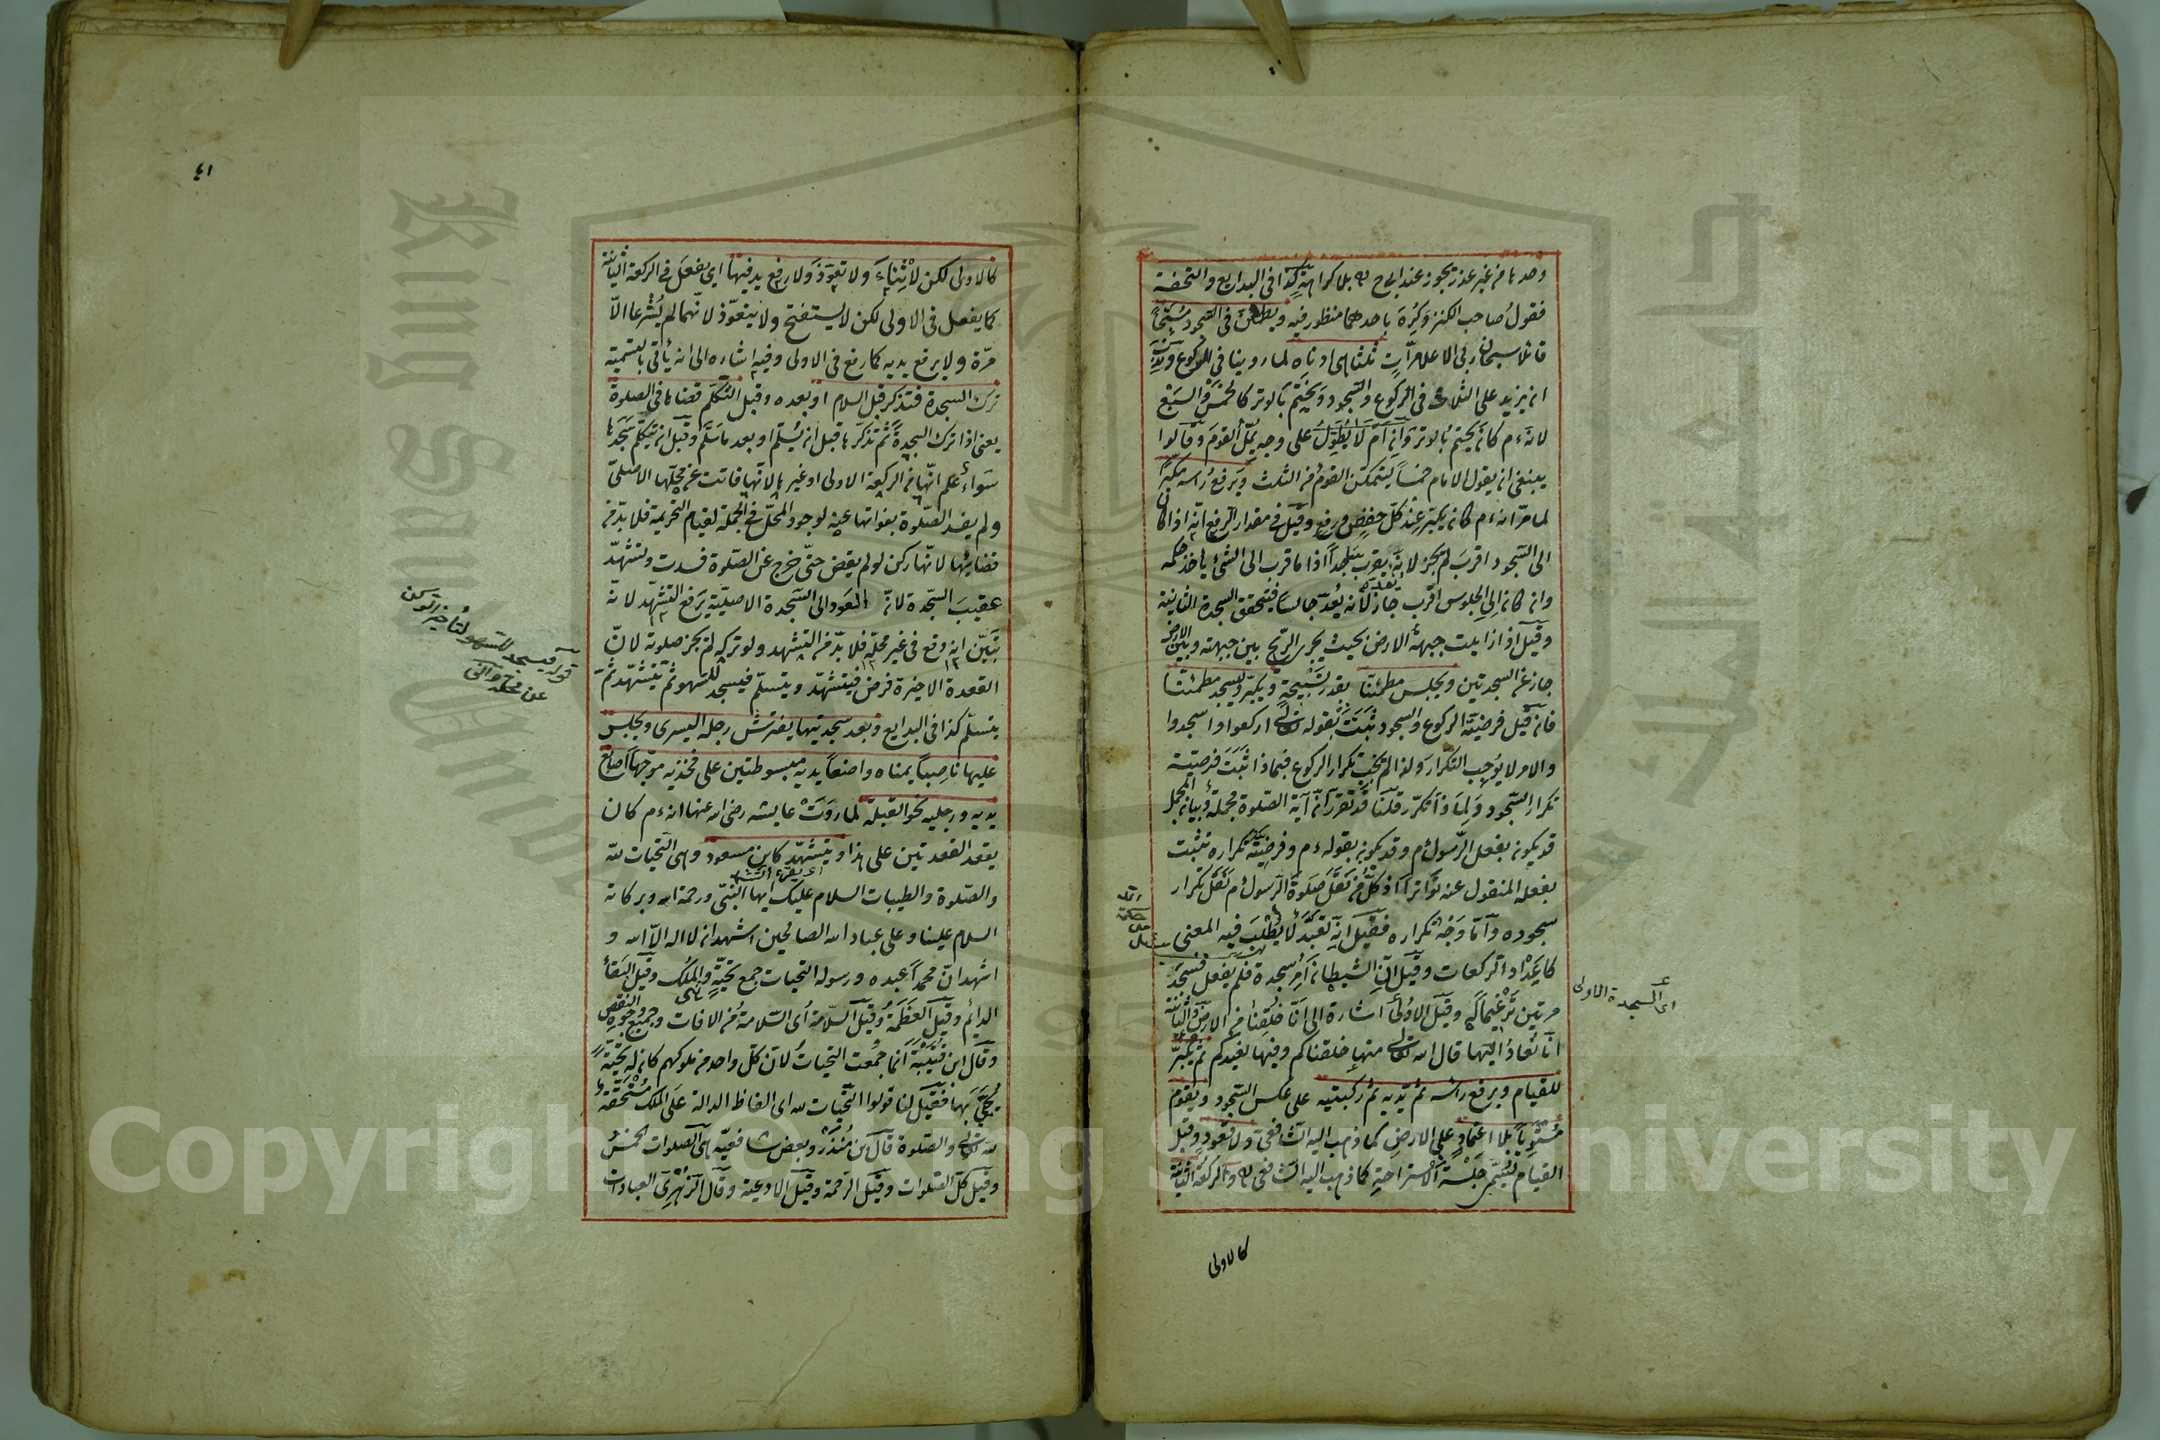 وحدها من غير عذر يجوز عند ابي ح ره بلا كراهة كذا في البدايع والتحفة
فقول صاحب الكنز وكره باحدهما منظور فيه ويطمئن في السجود مسبحا
قائلا سبحان ربي الاعلى مرات ثلثا هي ادناه لما روينا في الركوع وندب
ان يزيد على الثلاث في الركوع والسجود ويختم بالوتر كالخمس والسبع
لانه ءم كان يختم بالوتر وان ام لا يطول على وجه يمل القوم وقالوا
ينبغي ان يقول الامام خمسا ليتمكن القوم من الثلث ويرفع راسه مكبرا
لما مر انه ءم كان يكبر عند كل خفض ورفع وقيل في مقدار الرفع انه اذا كان
الى السجود اقرب لم يجز لانه يعد ساجدا اذ ما قرب الى الشئ ياخذ حكمه
وان كان الى الجلوس اقرب جاز لانه يعد جالسا فيتحقق السجدة الثانية
وقيل اذا زايلت جبهته الارض بحيث يجري الريح بين جبهته وبين الارض
جاز عن السجدتين ويجلس مطمئنا بقدر تسبيحة ويكبر ويسجد مطمئنا
فان قيل فرضية الركوع والسجود ثبتت بقوله تعالى اركعوا واسجدوا
والامر لا يوجب التكرار ولذا لم يجب تكرار الركوع فبماذا ثبت فرضية
تكرار السجود ولماذا تكرر قلنا قد تقرر ان آية الصلوة مجملة وبيان المجمل
قد يكون بفعل الرسول ءم وقد يكون بقوله ءم وفرضية تكراره تثبت
بفعله المنقول عنه تواترا اذ كل من نقل صلوة الرسول ءم نقل تكرار
سجوده واما وجه تكراره فقيل انه تعبد لا يطلب فيه المعنى
كاعداد الركعات وقيل ان الشيطان امر بسجدة فلم يفعل فنسجد
مرتين ترغيما له وقيل الاولى اشارة الى انا خلقنا من الارض والثانية
انا نعاد اليها قال الله تعالى منها خلقناكم وفيها نعيدكم ثم يكبر
للقيام ويرفع راسه ثم يديه ثم ركبتيه على عكس السجود ويقوم
مستويا بلا اعتماد على الارض كما ذهب اليه الشافعي ولا قعود قبل
القيام يسمى جلسة الاستراحة كما ذهب اليه الشافعي ره والركعة الثانية
كالاولى
اى السجدة الاولى
كالاولى لكن لا ثناء ولا تعوذ ولا رفع يد فيها اى يفعل في الركعة الثانية
كما يفعل في الاولى لكن لا يستفتح ولا يتعوذ لانهما لم يشرعا الا
مرة ولا يرفع يديه كما رفع في الاولى وفيه اشاره الى انه يأتي بالتسمية
ترك السجدة فتذكر قبل السلام او بعده وقبل التكلم قضاها في الصلوة
يعني اذا ترك السجدة ثم تذكرها قبل ان يسلم او بعد ما سلم وقبل ان يتكلم سجدها
سواء علم انها من الركعة الاولى او غيرها لانها فاتت عن محلها الاصلي
ولم يفسد الصلوة بفواتها عنه لوجود المحل في الجملة لقيام التحريمة فلا بد من
قضائها لانها ركن لو لم يقض حتى خرج عن الصلوة فسدت وتشهد
عقيب السجدة لانه العود الى السجدة الاصلية يرفع التشهد لانه
تبين انه وقع في غير محله فلا بد من التشهد ولو تركه لم يجز صلوته لان
القعدة الاخيرة فرض فيتشهد ويسلم فيسجد للسهو ثم يتشهد ثم
يسلم كذا في البدايع وبعد سجدتيها يفترش رجله اليسرى ويجلس
عليها ناصبا يمناه واضعا يديه مبسوطتين على فخذيه موجها اصابع
يديه ورجليه نحو القبلة لما روت عايشه رضى الله عنها انه ءم كان
يقعد القعدتين على هذا ويتشهد كابن مسعود وهى التحيات لله
اى يقرء التشهد
والصلوة والطيبات السلام عليك ايها النبي ورحمة الله وبركاته
السلام علينا وعلى عباد الله الصالحين اشهد ان لا اله الا الله و
اشهد ان محمدا عبده ورسوله التحيات جمع تحية وهى الملك وقيل البقاء
الدائم وقيل العظمة وقيل السلامة اى السلامة من الافات وجميع وجوه النقص
وقال ابن قتيبة انما جمعت التحيات لان كل واحد من ملوكهم كان له تحية
يحيى بها فقيل لنا قولوا التحيات لله اى الفاظ الدالة على الملك مستحقة
لله تعالى والصلوة قال ابن منذر وبعض شافعيه هى الصلوات الخمس
وقيل كل الصلوات وقيل الرحمة وقيل الادعية وقال الزهرى العبادات
قوله فيسجد للسهو لتاخير الركن
عن محله
٤١
King Saud University
Copyright © King Saud University